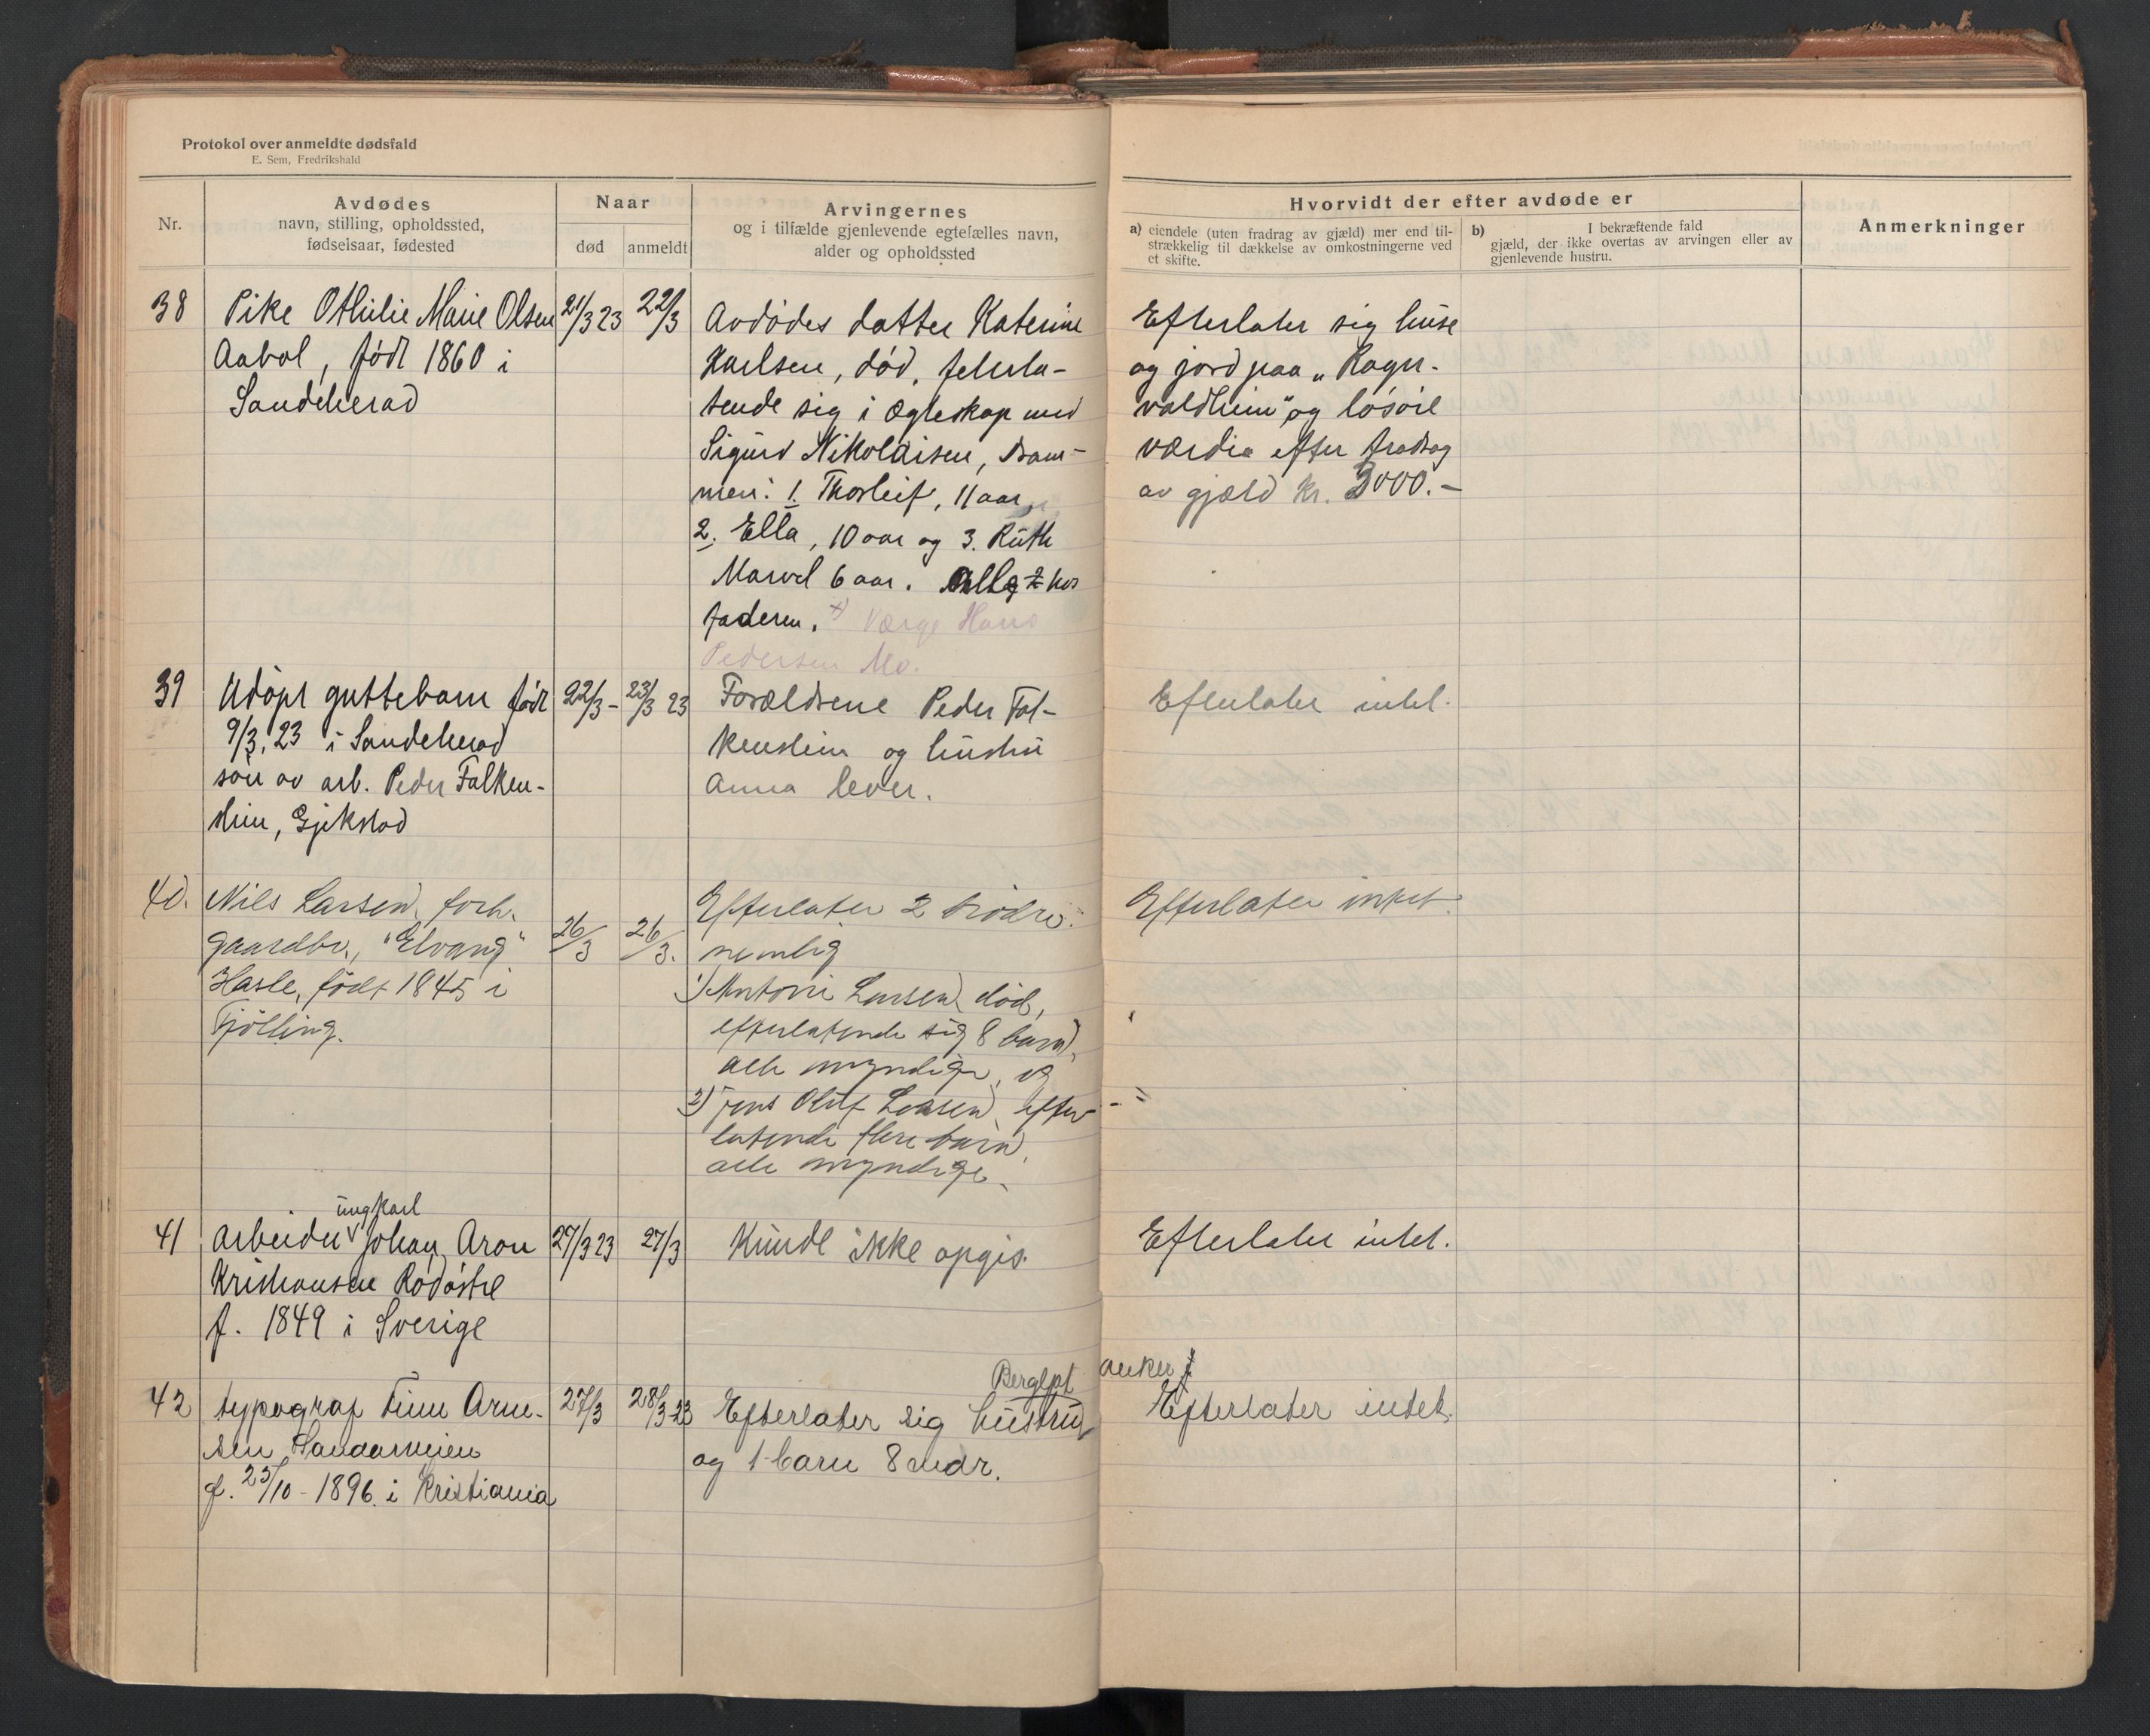 Protokol over anmeldte dødsfald
E. Sem, Fredrikshald
Nr.
Avdødes
navn, stilling, opholdssted,
fødselsaar, fødested
Naar
død
anmeldt
Arvingernes
og i tilfælde gjenlevende egtefælles navn,
alder og opholdssted
Hvorvidt der efter avdøde er
a) eiendele (uten fradrag av gjæld) mer end til-
strækkelig til dækkelse av omkostningerne ved
et skifte.
b) I bekræftende fald
gjæld, der ikke overtas av arvingen eller av
gjenlevende hustru.
Anmerkninger
38
Pike Othilie Marie Olsen
Aabol, født 1860 i
Sandeherad
21/3 23
22/3
Avdødes datter Katerine
Karlsen, død,
tende sig i ægteskap med
Sigurd Nikolaisen, Dram-
men: 1. Thorleif, 11 aar,
2. Ella, 10 aar og 3. Ruth
Marvel 6 aar. Alle hos
faderen. x) Værge Hans
Pedersen Mo.
Efterlater sig huse
og jord paa "Ragn-
valdheim" og løsøre
værdi efter fradrag
av gjæld kr. 3000.-
39
Udøpt guttebarn født
9/3, 23 i Sandeherad
søn av arb. Peder Falken-
stein, Gjekstad
22/3 -
23/3 23
Forældrene Peder Fal-
kenstein og hustru
Anna lever.
Efterlater intet.
40.
Nils Larsen, forh.
gaardbr., "Elvang"
Hasle, født 1845 i
Tjølling.
26/3
26/3.
Efterlater 2 brødre:
nemlig
1) Anton Larsen, død,
efterlatende sig 8 barn,
alle myndige, og
2) Jens Oluf Larsen, efter-
latende flere barn,
alle myndige.
Efterlater intet.
41
ungkarl
Arbeider Johan Aron
Kristiansen Rødøstre
f. 1849 i Sverige
27/3 23
27/3
Kunde ikke opgis.
Efterlater intet.
42
typograf Finn Arne-
sen Landarveien
f. 23/10 - 1896 i Kristiania
27/3
28/3 23
Efterlater sig hustru
og 1 barn 8 mdr.
Efterlater intet.